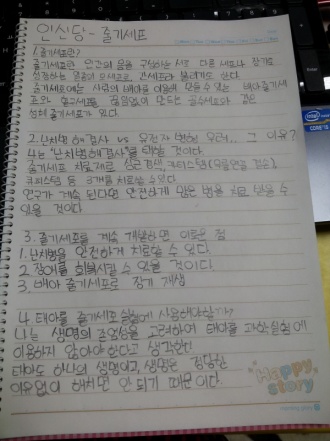 인신당 - 줄기세포
1. 줄기세포란?
줄기세포란 인간의 몸을 구성하는 서로 다른 세포나 장기로
성장하는 일종의 모세포로, 간세포라 불리기도 한다.
줄기세포에는 사람의 배아를 이용해 만들 수 있는 배아줄기세
포와 혈구세포를 끊임없이 만드는 골수세포와 같은
성체줄기세포가 있다.
2. 난치병 해결사 vs 유전자 변형 우려... 그 이유?
나는 "난치병 해결사"를 택할 것이다.
줄기세포 치료제로
큐피스템 등 3개를 치료할 수 있다.
연구가 계속 된다면 안전하게 많은 병을 치료 받을 수
있을 것이다.
3. 줄기세포를 계속 개발하면 이로운 점
1. 난치병을 안전하게 치료할 수 있다.
2. 장애를 회복시킬 수 있을 것이다.
3. 배아 줄기세포로 장기 재생
4. 태아를 줄기세포 실험에 사용해야할까?
나는 생명의 존엄성을 고려하여 태아를 과학실험에
이용하지 않아야한다고 생각한다.
태아도 하나의 생명이고, 생명은 정당한
이유없이 해치면 안 되기 때문이다.
Happy
story
intel
CORE i3